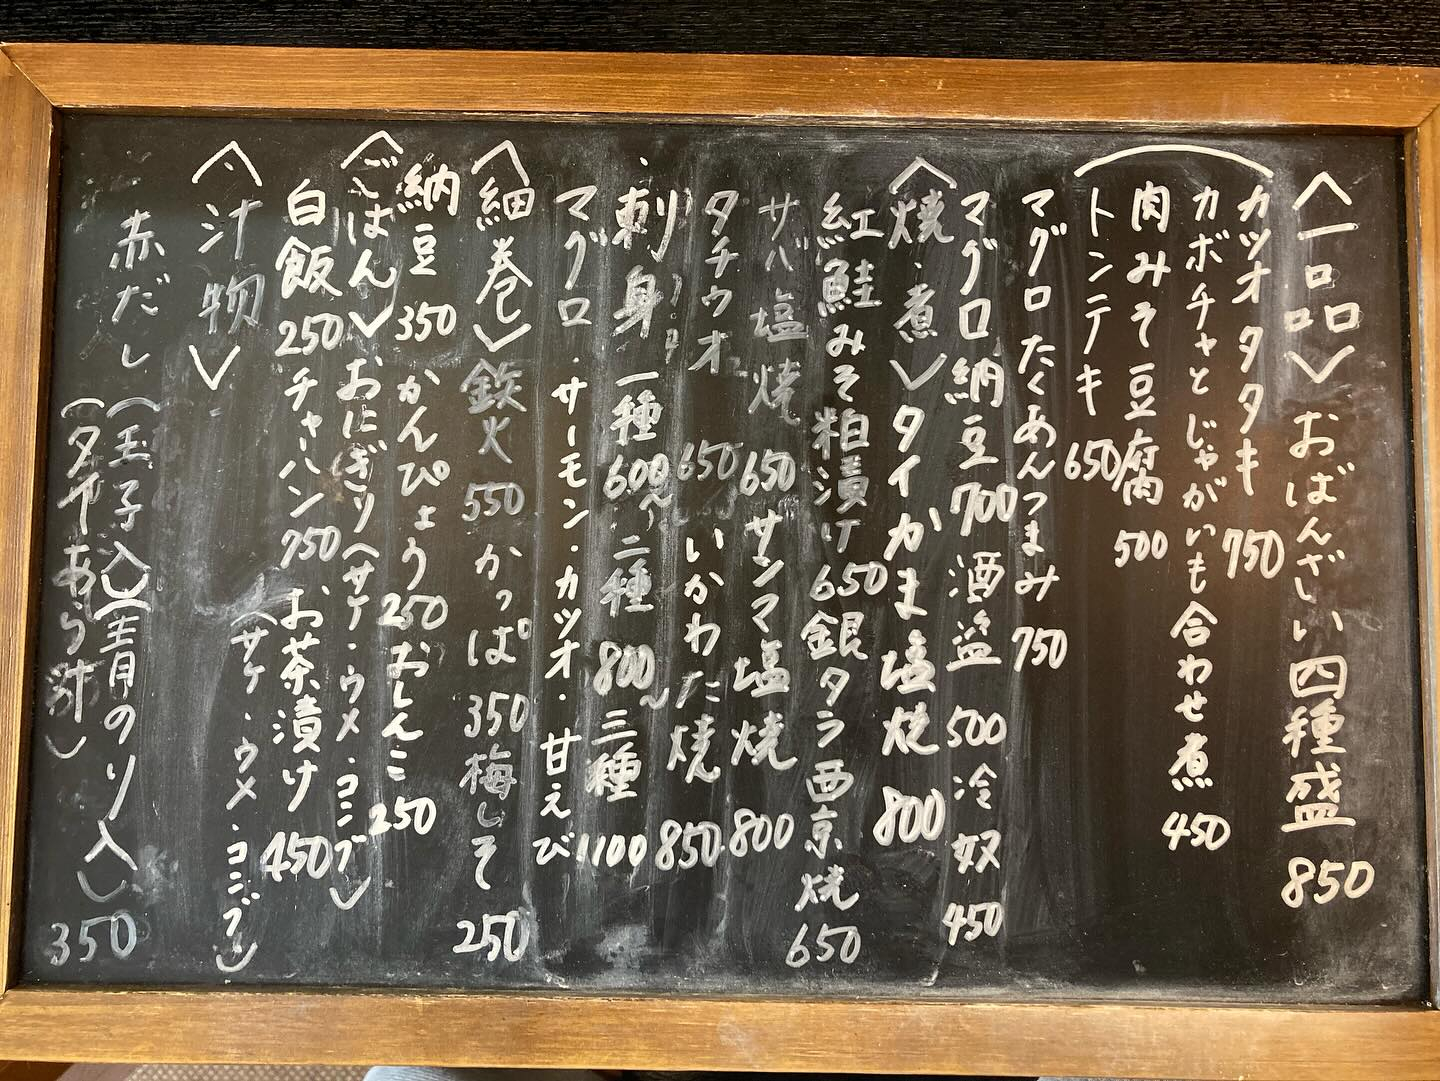 〈一品〉おばんざい四種盛 850
カツオタタキ 750
カボチャとじゃがいも合わせ煮 450
肉みそ豆腐 500
トンテキ 650
マグロたくあんつまみ 750
マグロ納豆 700 酒盗 500 冷奴 450
〈焼・煮〉タイかま塩焼 800
紅鮭みそ粕漬け 650 銀タラ西京焼 650
サバ塩焼 650 サンマ塩焼 800
タチウオ 650 いかわた焼 850
刺身 一種 600〜 二種 800〜 三種 1100
マグロ・サーモン・カツオ・甘えび
〈細巻〉鉄火 550 かっぱ 350 梅しそ 250
納豆 350 かんぴょう 250 おしんこ 250
〈ごはん〉おにぎり(サケ・ウメ・コンブ)
白飯 250 チャーハン 750 お茶漬け 450
(サケ・ウメ・コンブ)
〈汁物〉
赤だし(玉子入)(青のり入)
(タイあら汁) 350